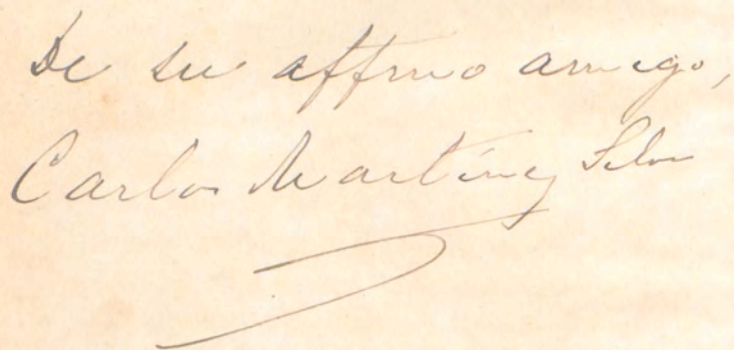 De su affmo amigo,
Carlos Martínez Silva